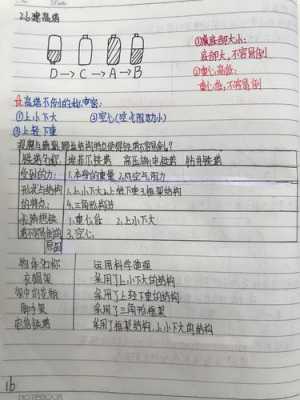 2.6建高塔
①底部大小:
底部大,不容易倒
②重心高低:
重心低,不容易倒
D→C→A→B
高塔不倒的秘密:
①上小下大 ②空心(空气阻力小)
③上轻下重
铁塔名称
受到的力: 1.本身的重量 2.风空气阻力
形状与结构 1.上小下大2.上轻下重3.框架结构
的特点: 4.三角形构造
1.重心低 2.上小下大
不容易倒的 3.空心
原因
物体名称 运用科学原理
衣帽架 采用了上小下大的结构
采用了上轻下重的结构
脚手架 采用了三角形框架
采用了框架结构,上小下大的结构
16
NOTEBOOK